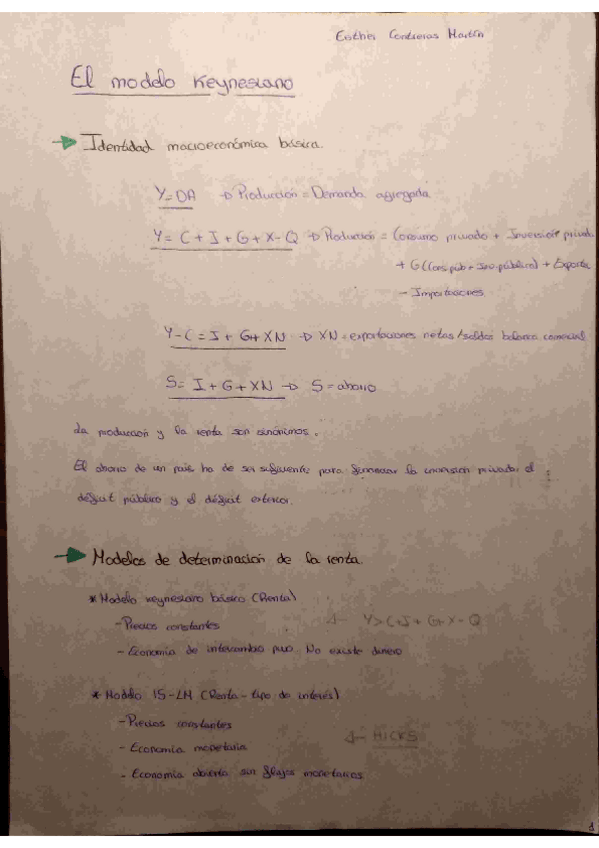 Esther Contreras Martín
El modelo Keynesiano
Identidad macroeconómica básica.
Y=DA → Producción = Demanda agregada
Y = C + I + G + X - Q → Producción = Consumo privado + Inversión privada
+ G (Cons. púb + Inv. público) + Exporta
- Importaciones
Y-C = I + G + XN → XN = exportaciones netas/saldos balanza comercial
S = I + G + XN → S = ahorro
La producción y la renta son sinónimos.
El ahorro de un país ha de ser suficiente para financiar la inversión privada, el
déficit público y el déficit exterior.
Modelos de determinación de la renta.
* Modelo Keynesiano básico (Renta)
- Precios constantes
Y=C+I+G+X-Q
- Economía de intercambio puro. No existe dinero
* Modelo IS-LM (Renta - tipo de interés)
- Precios constantes
HICKS
- Economía monetaria
- Economía abierta sin flujos monetarios